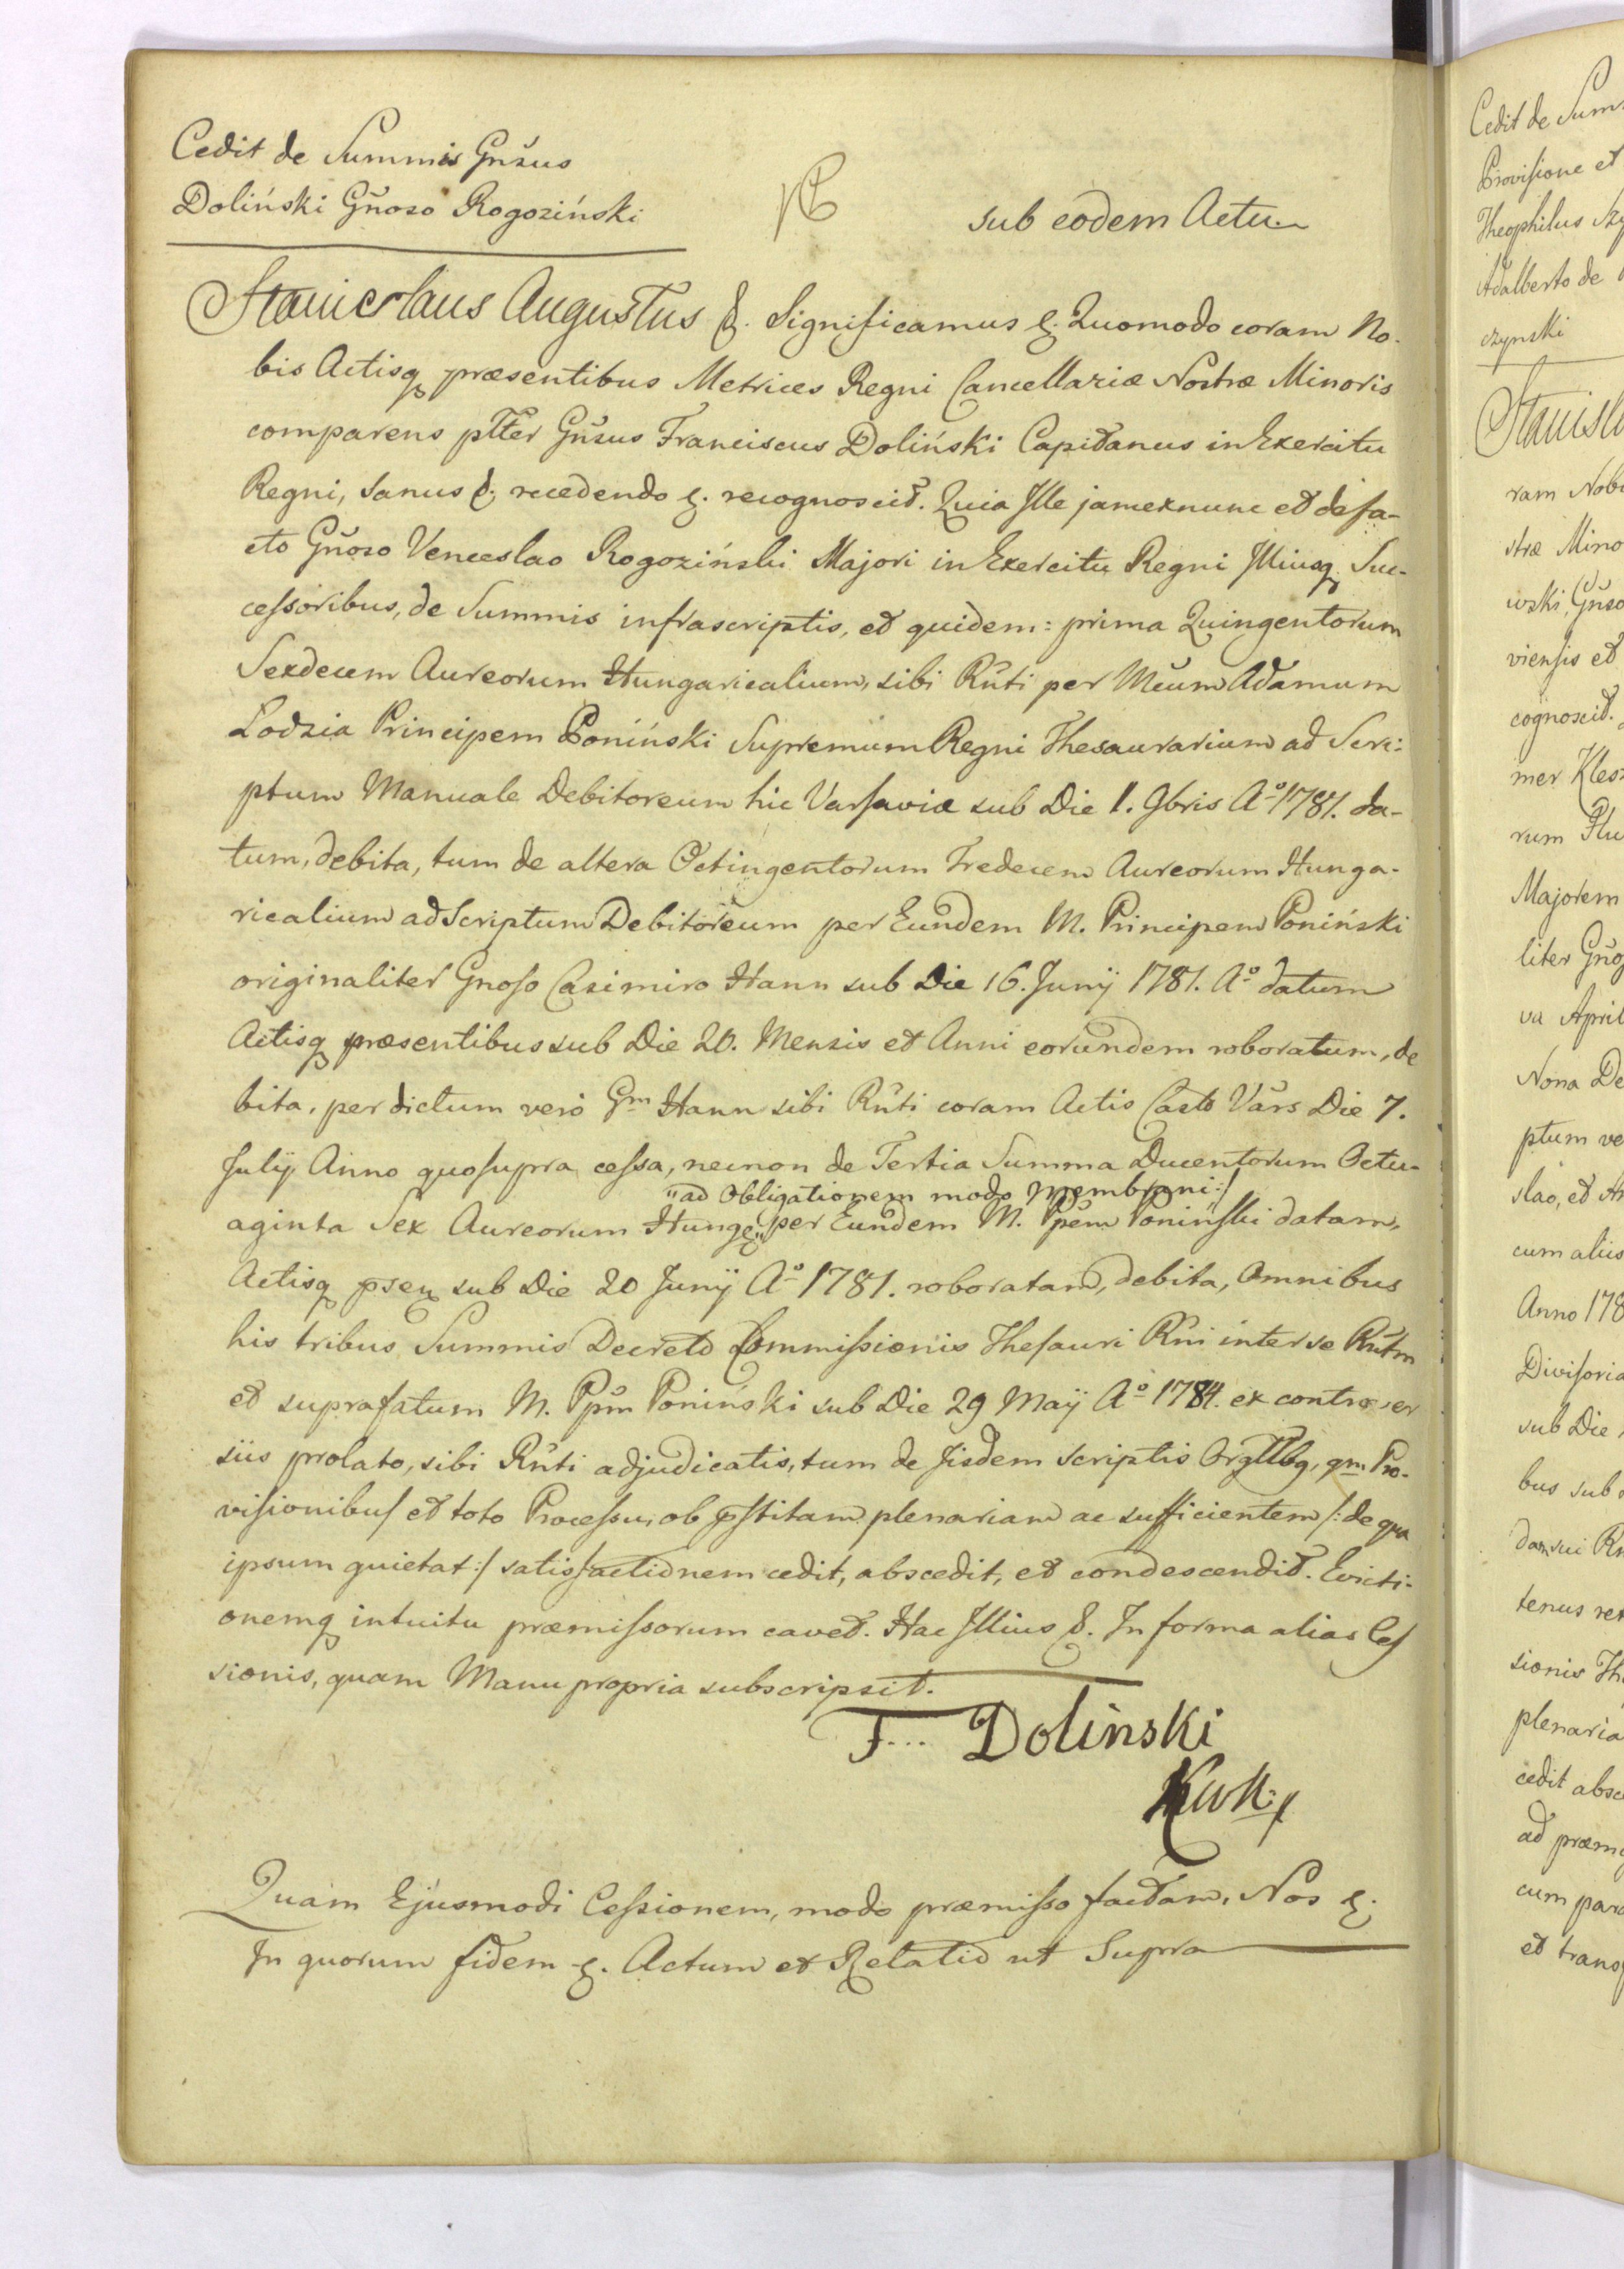 Cedit de Summis Gñsus
Doliński Gñoso Rogoziński
sub eodem Actu
Stanislaus Augustus &. Significamus &. Quomodo coram No-
bis Actisq præsentibus Metrices Regni Cancellariæ Nostræ Minoris
comparens pltter Gñsus Franciscus Doliński Capitaneus in Exercitu
Regni, sanus &. recedendo &. recognoscit. Quia Ille jam exnunc et de fa-
cto Gñoso Venceslao Rogoziński Majori in Exercitu Regni Illiusq Suc-
cessoribus, de Summis infrascriptis, et quidem: prima Quingentorum
Sexdecem Aureorum Hungaricalium, sibi Rñti per Mcum Adamum
Lodzia Principem Poniński Supremum Regni Thesaurarium ad Scri:
ptum Manuale Debitoreum hic Varsaviæ sub Die 1. 9bris Aº 1781. da-
tum, debita, tum de altera Octingentorum Tredecem Aureorum Hunga-
ricalium ad Scriptum Debitoreum per Eundem M. Principem Poniński
originaliter Gnoso Casimiro Hann sub Die 16. Junij 1781. Aº datum
Actisq præsentibus sub Die 20. Mensis et Anni eorundem roboratum, de
bita, per dictum verò Gm Hann sibi Rñti coram Actis Castr Vars Die 7.
Julij Anno quo supra cessa, necnon de Tertia Summa Ducentorum Octu-
"ad Obligationem modo membrani:/
aginta Sex Aureorum Hung" per Eundem M. Ppem Poniński datam,
Actisq psen sub Die 20 Junij Aº 1781. roboratam, debita, Omnibus
his tribus Summis Decreto Commissionis Thesauri Rñi inter se Rñtm
et suprafatum M. Ppm Poniński sub Die 29 Maij Aº 1784. ex controver
siis prolato, sibi Rñti adjudicatis, tum de Iisdem scriptis Orgltbq, qm Pro-
visionibus et toto Processu, ob pstitam plenariam ac sufficientem /: de qua
ipsum quietat:/ satisfactionem cedit, abscedit, et condescendit. Evicti-
onemq intuitu præmissorum cavet. Hac Illius &. In forma alias Ces
sionis, quam Manu propria subscripsit.
F... Doliński
Quam Ejusmodi Cessionem, modo præmisso factam, Nos &.
In quorum fidem &. Actum et Relatio ut Supra